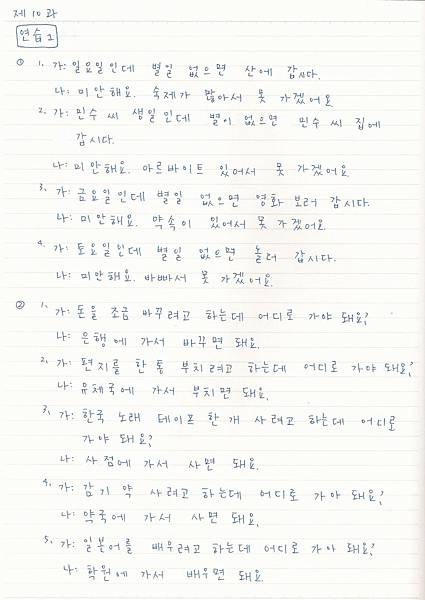 제 10 과
연습 1
① 1. 가: 일요일인데 별일 없으면 산에 갑시다.
나: 미안해요. 숙제가 많아서 못 가겠어요
2. 가: 민수 씨 생일인데 별이 없으면 민수 씨 집에
갑시다.
나: 미안해요. 아르바이트 있어서 못 가겠어요
3. 가: 금요일인데 별일 없으면 영화 보러 갑시다.
나: 미안해요. 약속이 있어서 못 가겠어요.
4. 가: 토요일인데 별일 없으면 놀러 갑시다.
나: 미안해요. 바빠서 못 가겠어요.
② 1. 가: 돈을 조금 바꾸려고 하는데 어디로 가야 돼요?
나: 은행에 가서 바꾸면 돼요.
2. 가: 편지를 한 통 부치려고 하는데 어디로 가야 돼요?
나: 유체국에 가서 부치면 돼요.
3. 가: 한국 노래 테이프 한 개 사려고 하는데 어디로
가야 돼요?
나: 사점에 가서 사면 돼요.
4. 가: 감기 약 사려고 하는데 어디로 가야 돼요?
나: 약국에 가서 사면 돼요.
5. 가: 일본어를 배우려고 하는데 어디로 가야 돼요?
나: 학원에 가서 배우면 돼요.